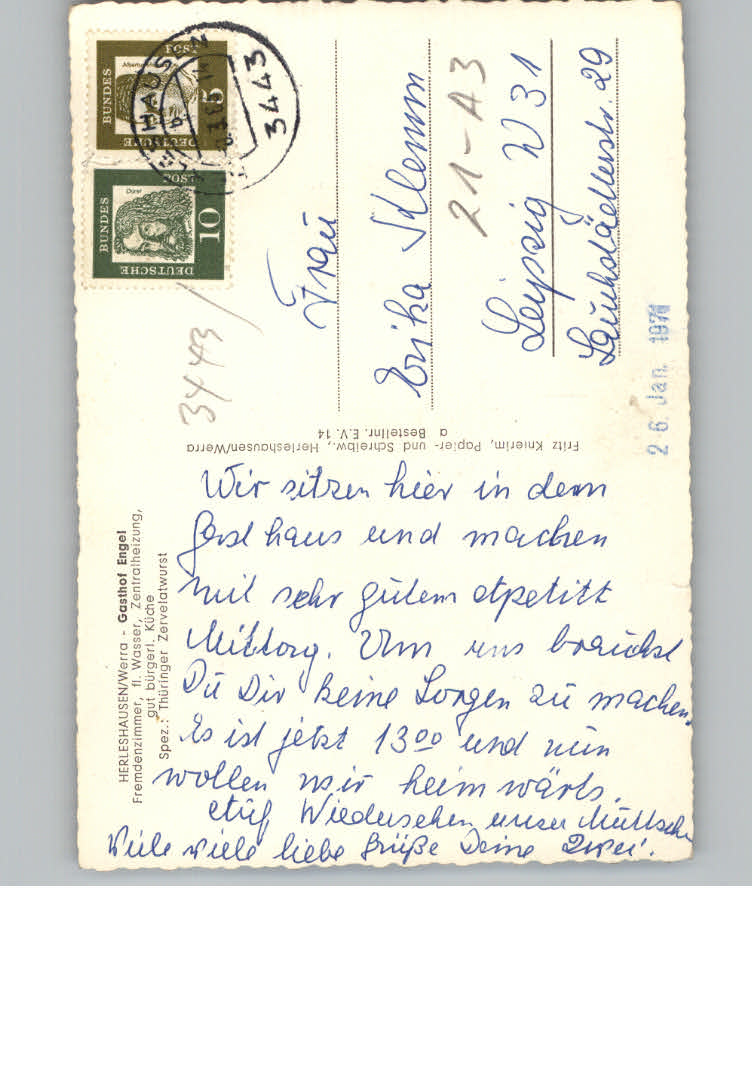 HERLESHAUSEN/Werra - Gasthof Engel
Fremdenzimmer, fl. Wasser, Zentralheizung,
gut bürgerl. Küche
Spez.: Thüringer Zervelatwurst
Wir sitzen hier in dem
Gasthaus und machen
mit sehr gutem Appetitt
Mittag. Um uns brauchst
Du Dir keine Sorgen zu machen.
Es ist jetzt 13⁰⁰ und nun
wollen wir heimwärts.
Auf Wiedersehen unser Muttchen
Viele viele liebe Grüße Deine Zwei.
Fritz Knierim, Papier- und Schreibw., Herleshausen/Werra
a Bestellnr. E.V. 14
DEUTSCHE
BUNDES
POST
5
DEUTSCHE
BUNDES
POST
Dürer
10
3443
3443
Frau
Erika Klemm
21-A3
Leipzig W 31
Lauchstädterstr. 29
26 Jan. 1971